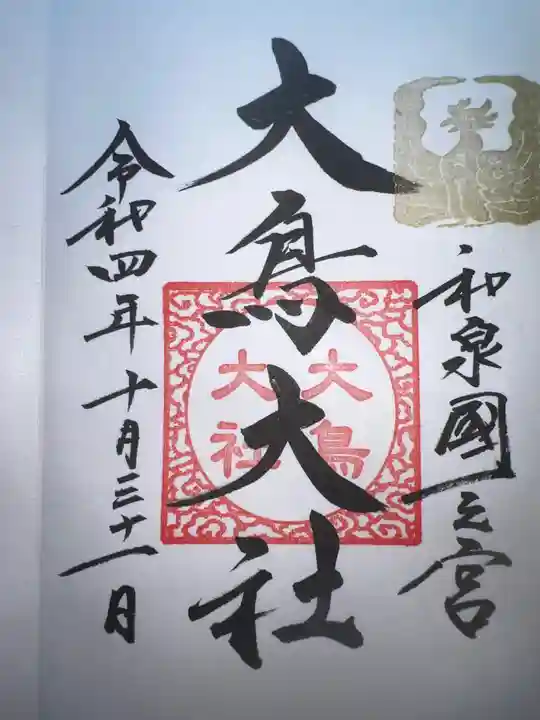 和泉國一之宮
大鳥大社
大鳥
大社
令和四年十月三十一日